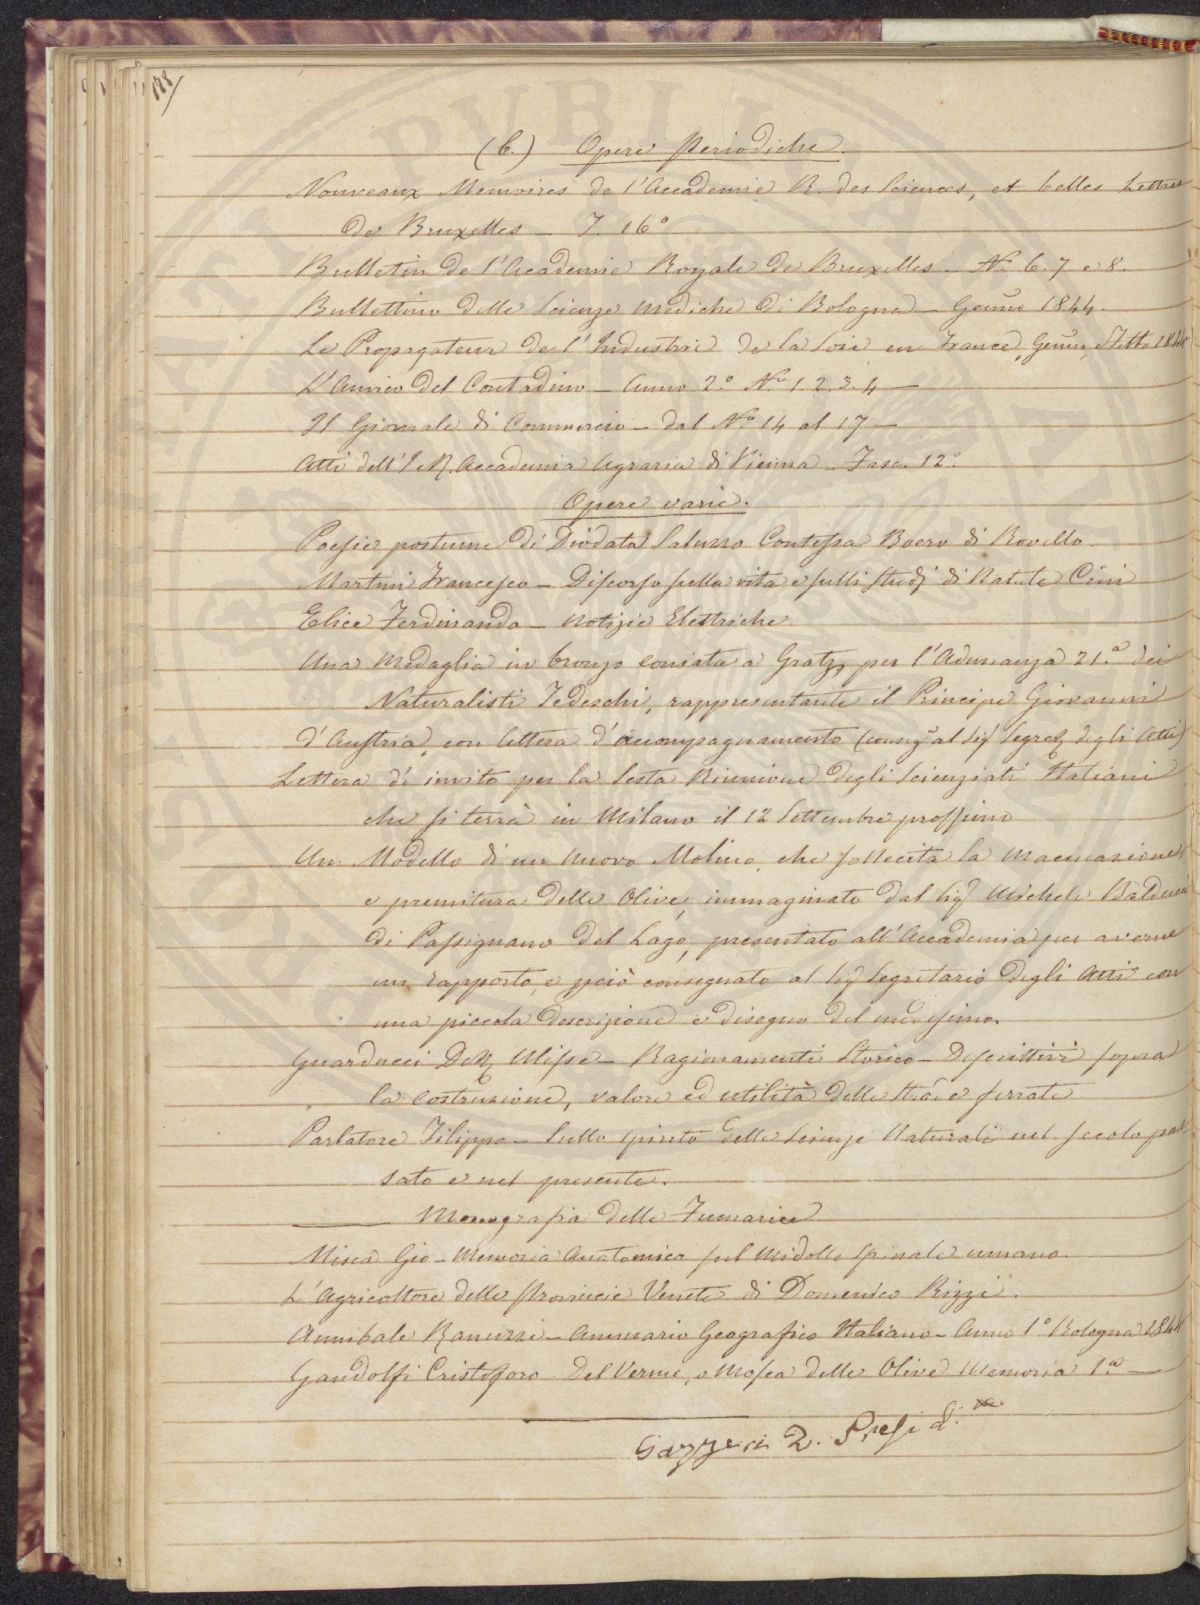 178/
(6.) Opere Periodiche.
Nouveaux Memoires de l'Accademie R. des Sciences, et belles Lettres
de Bruxelles – T. 16°
Bulletin de l'Academie Royale de Bruxelles – N.° 6. 7 e 8.
Bullettino delle Scienze Mediche di Bologna – Genn.° 1844.
Le Propagateur de l'Industrie de la Soie en France, Genn.
L'Amico del Contadino – Anno 2.° N.° 1. 2. 3. 4 –
Il Giornale di Commercio – dal N.° 14 al 17 –
Atti dell'I. e R. Accademia Agraria di Vienna – Fasc. 12°.
Opere varie.
Poesie postume di Diodata Saluzzo Contessa Roero di Rovello
Martini Francesco – Discorso sulla vita e sulli studj di Natale Cini
Elice Ferdinando – Notizie Elettriche.
Una Medaglia in bronzo coniata a Gratz, per l'Adunanza 21.a dei
Naturalisti Tedeschi, rappresentante il Principe Giovanni
d'Austria, con lettera d'accompagnamento (conseg.a al Sig.r Segret. degli Atti)
Lettera d'invito per la Sesta Riunione degli Scienziati Italiani
che si terrà in Milano il 12 Settembre prossimo
Un Modello di un nuovo Molino, che sollecita la macinazione
e premitura delle Olive, immaginato dal Sig.r Michele Balducci
di Passignano del Lago, presentato all'Accademia per averne
un rapporto, e perciò consegnato al Sig.r Segretario degli Atti con
una piccola descrizione e disegno del medesimo.
Guarducci Dott. Ulisse – Ragionamenti Storico – Descrittivi sopra
la costruzione, valore ed utilità delle strade ferrate
Parlatore Filippo – Sullo spirito delle Scienze Naturali nel secolo pas-
sato e nel presente.
——— Monografia delle Fumariee
Misea Gio – Memoria Anatomica sul Midollo spinale umano.
L'Agricoltore delle Provincie Venete di Domenico Rizzi.
Annibale Ranuzzi – Annuario Geografico Italiano – Anno 1.° Bologna 1844
Gandolfi Cristoforo – Del Verme, o Mosca delle Olive Memoria 1.a –
Gazzeri 2. Presid.te